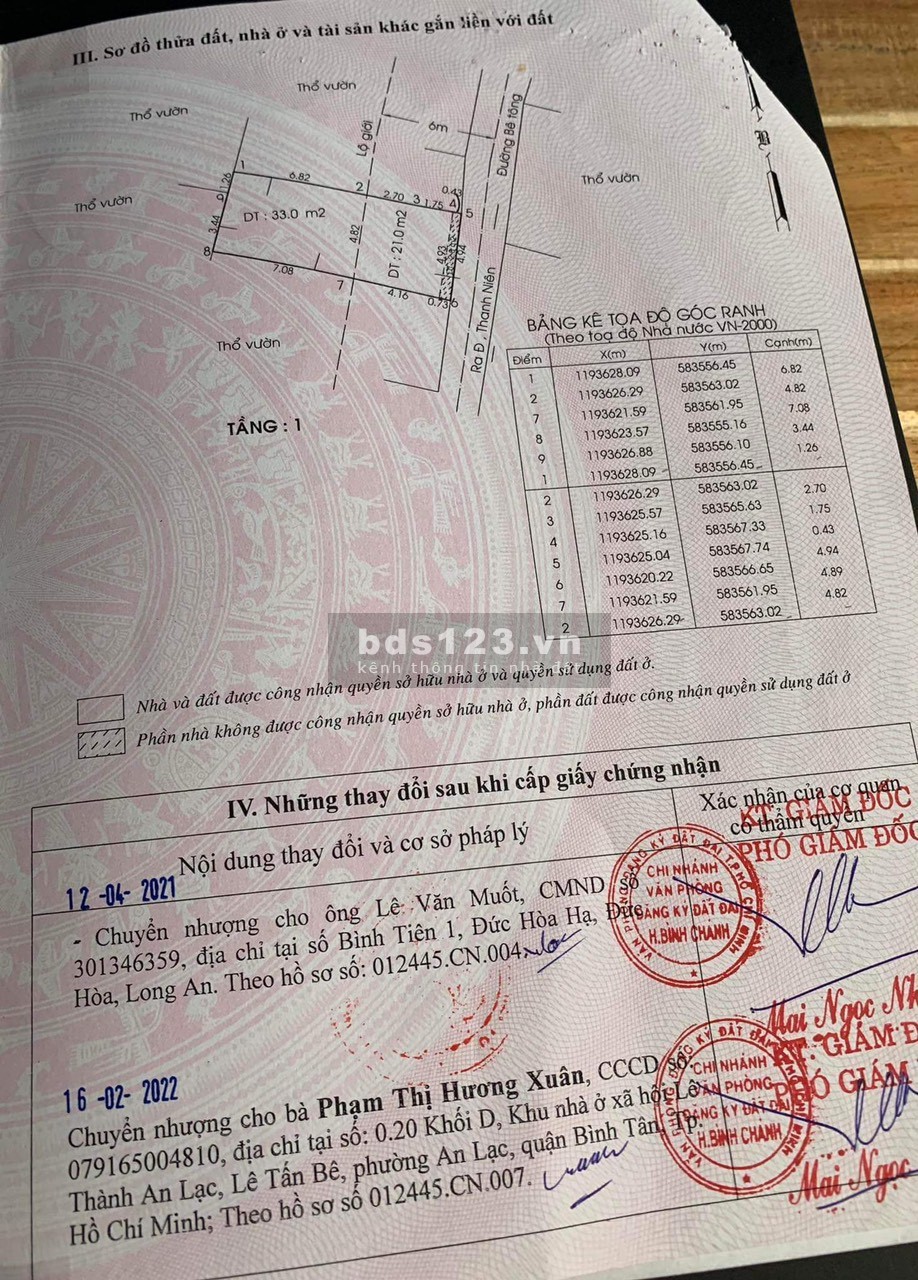 III. Sơ đồ thửa đất, nhà ở và tài sản khác gắn liền với đất
Thổ vườn
Thổ vườn
Thổ vườn
Thổ vườn
Thổ vườn
Lộ giới
6m
Đường Bê tông
Ra Đ. Thanh Niên
B
1
6.82
2
2.70
3
1.75
0.43
4
5
1.26
9
3.44
8
DT : 33.0 m2
4.82
DT : 21.0 m2
4.93
4.94
7.08
7
4.16
0.73
6
TẦNG : 1
BẢNG KÊ TỌA ĐỘ GÓC RANH
(Theo toạ độ Nhà nước VN-2000)
Điểm X(m) Y(m) Cạnh(m)
1 1193628.09 583556.45 6.82
2 1193626.29 583563.02 4.82
7 1193621.59 583561.95 7.08
8 1193623.57 583555.16 3.44
9 1193626.88 583556.10 1.26
1 1193628.09 583556.45
2 1193626.29 583563.02 2.70
3 1193625.57 583565.63 1.75
4 1193625.16 583567.33 0.43
5 1193625.04 583567.74 4.94
6 1193620.22 583566.65 4.89
7 1193621.59 583561.95 4.82
2 1193626.29 583563.02
bds123.vn
kênh thông tin nhà đất
Nhà và đất được công nhận quyền sở hữu nhà ở và quyền sử dụng đất ở.
Phần nhà không được công nhận quyền sở hữu nhà ở, phần đất được công nhận quyền sử dụng đất ở
IV. Những thay đổi sau khi cấp giấy chứng nhận
Nội dung thay đổi và cơ sở pháp lý
Xác nhận của cơ quan
có thẩm quyền
12 -04- 2021
- Chuyển nhượng cho ông Lê Văn Muốt, CMND số
301346359, địa chỉ tại số Bình Tiên 1, Đức Hòa Hạ, Đức
Hòa, Long An. Theo hồ sơ số: 012445.CN.004
KT. GIÁM ĐỐC
PHÓ GIÁM ĐỐC
CHI NHÁNH
VĂN PHÒNG
ĐĂNG KÝ ĐẤT ĐAI
H.BÌNH CHÁNH
VĂN PHÒNG ĐĂNG KÝ ĐẤT ĐAI T.PHỐ CHÍ MINH
Mai Ngọc
16 -02- 2022
Chuyển nhượng cho bà Phạm Thị Hương Xuân, CCCD số
079165004810, địa chỉ tại số: 0.20 Khối D, Khu nhà ở xã hội Lê
Thành An Lạc, Lê Tấn Bê, phường An Lạc, quận Bình Tân, Tp.
Hồ Chí Minh; Theo hồ sơ số 012445.CN.007.
KT. GIÁM
PHÓ GIÁM
CHI NHÁNH
VĂN PHÒNG
ĐĂNG KÝ ĐẤT ĐAI
H.BÌNH CHÁNH
Mai Ngọc